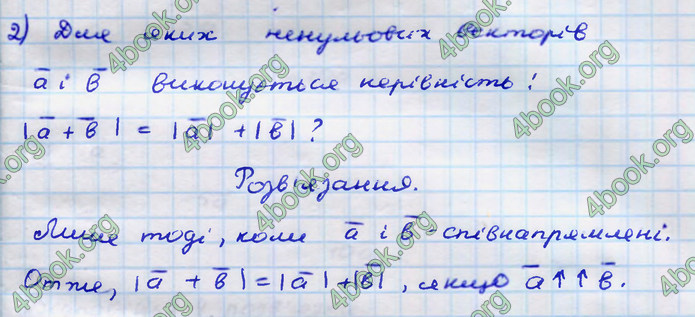 2) Для яких ненульових векторів
a̅ і b̅ виконується нерівність:
|a̅ + b̅| = |a̅| + |b̅|?
Розв'язання.
Лише тоді, коли a̅ і b̅ співнапрямлені.
Отже, |a̅ + b̅| = |a̅| + |b̅|, якщо a̅ ↑↑ b̅.
4book.org
4book.org
4book.org
4book.org
4book.org
4book.org